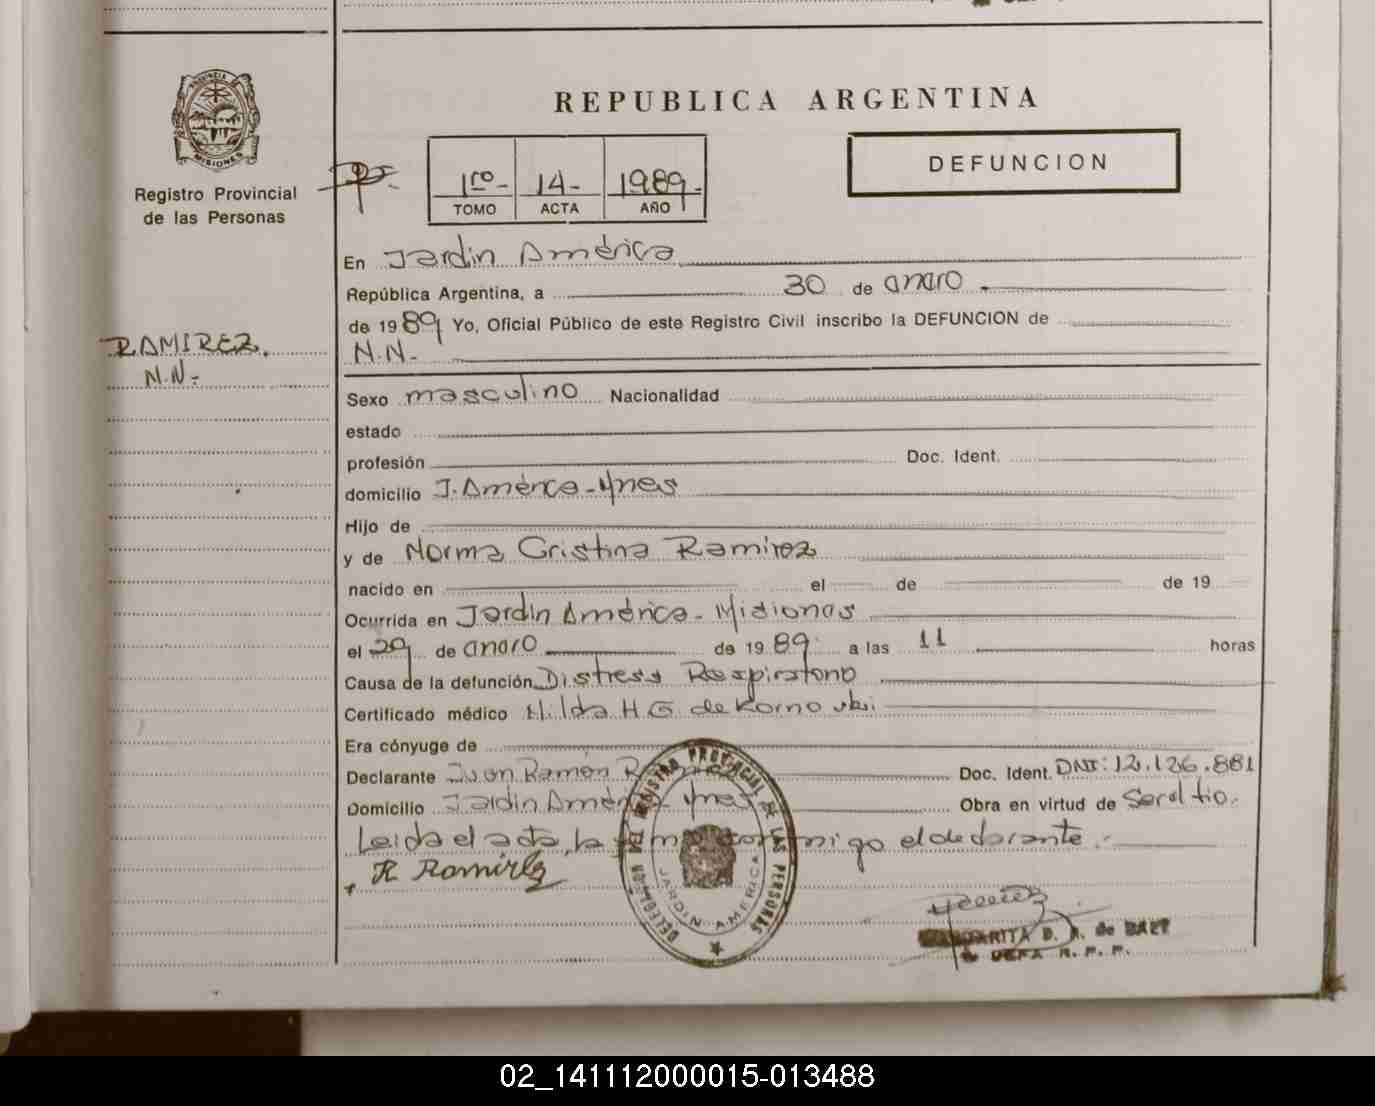 PROVINCIA
MISIONES
Registro Provincial
de las Personas
RAMIREZ.
N.N.-
REPUBLICA ARGENTINA
DEFUNCION
1ro- 14- 1989-
TOMO ACTA AÑO
En Jardin América
República Argentina, a 30 de enero
de 1989 Yo, Oficial Público de este Registro Civil inscribo la DEFUNCION de
N.N.-
Sexo masculino Nacionalidad
estado
profesión Doc. Ident.
domicilio J. América-Mnes
Hijo de
y de Norma Cristina Ramirez
nacido en el de de 19
Ocurrida en Jardin América-Misiones
el 29 de enero de 1989 a las 11 horas
Causa de la defunción Distress Respiratorio
Certificado médico Hilda H G de
Era cónyuge de
Declarante Juan Ramón Doc. Ident. DNI: 12.126.881
Domicilio Jardin América-Mnes Obra en virtud de Ser el tio.
Leida el acta, la firma conmigo el declarante.-
R Ramirez
DELEGACION DEL REGISTRO PROVINCIAL DE LAS PERSONAS
JARDIN AMERICA
MARGARITA D. R. de BAEZ
JEFA R. P. P.
02_141112000015-013488